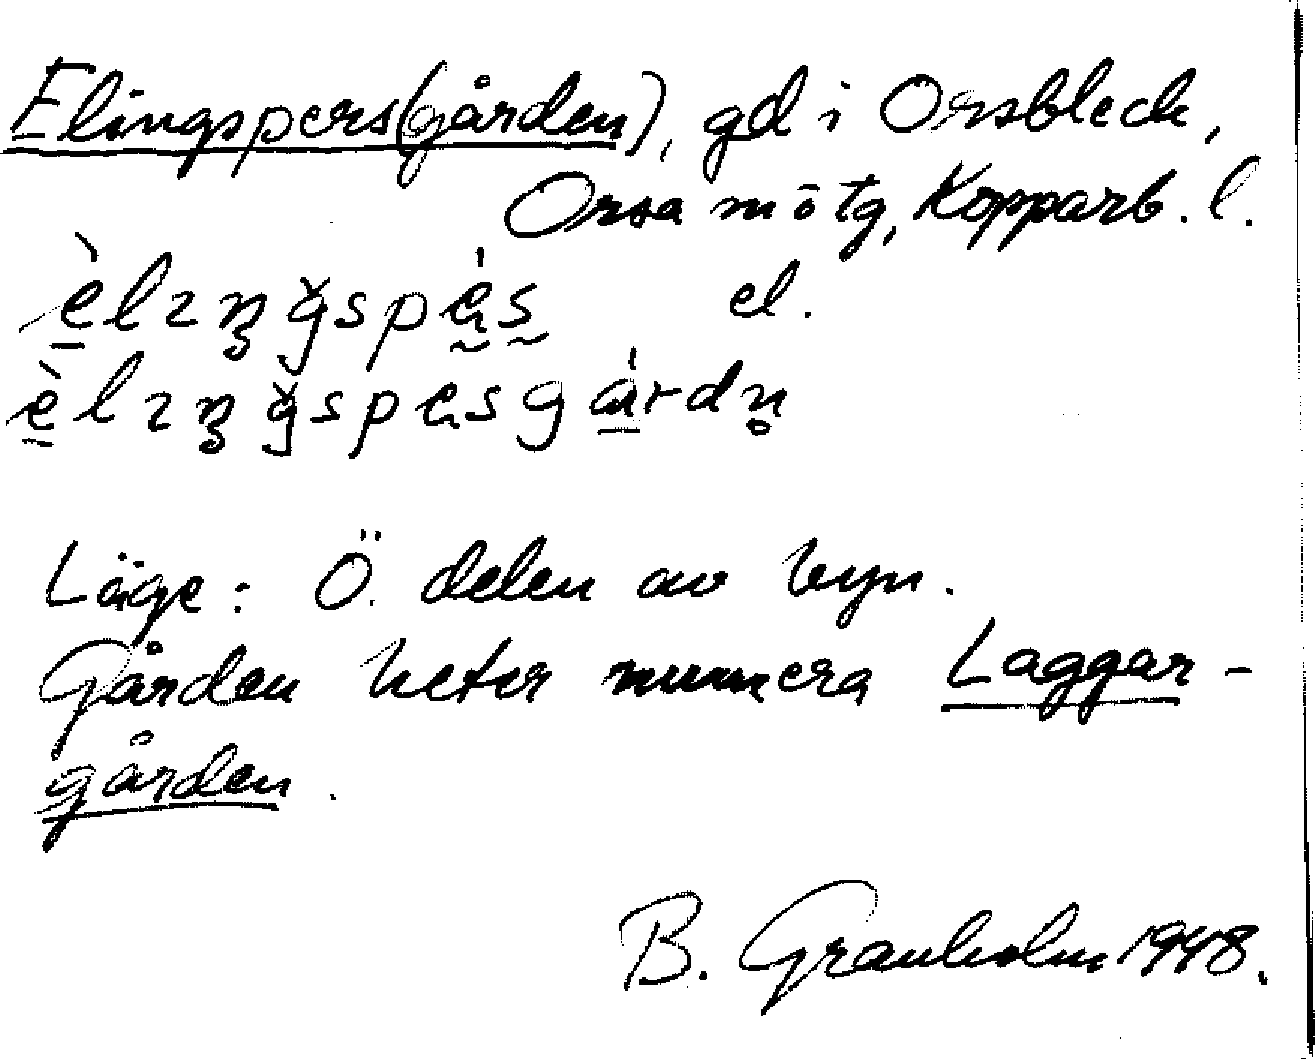 Elingspers(gården), gd i Orsbleck,
Orsa m o tg, Kopparb. l.
el.
Läge: Ö. delen av byn.
Gården heter numera Laggar-
gården.
B. Granholm 1948.